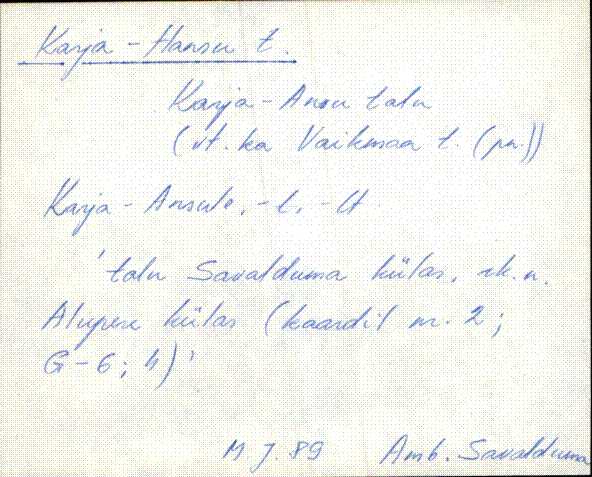 Karja-Hansu t.
Karja-Ansu talu
(vt. ka Vaikmaa t. (pn.))
Karja-Ansule, -l, -lt
'talu Savalduma külas, rk. n.
Alupere külas (kaardil nr. 2;
G-6; 4)'
M J. 89 Amb. Savalduma